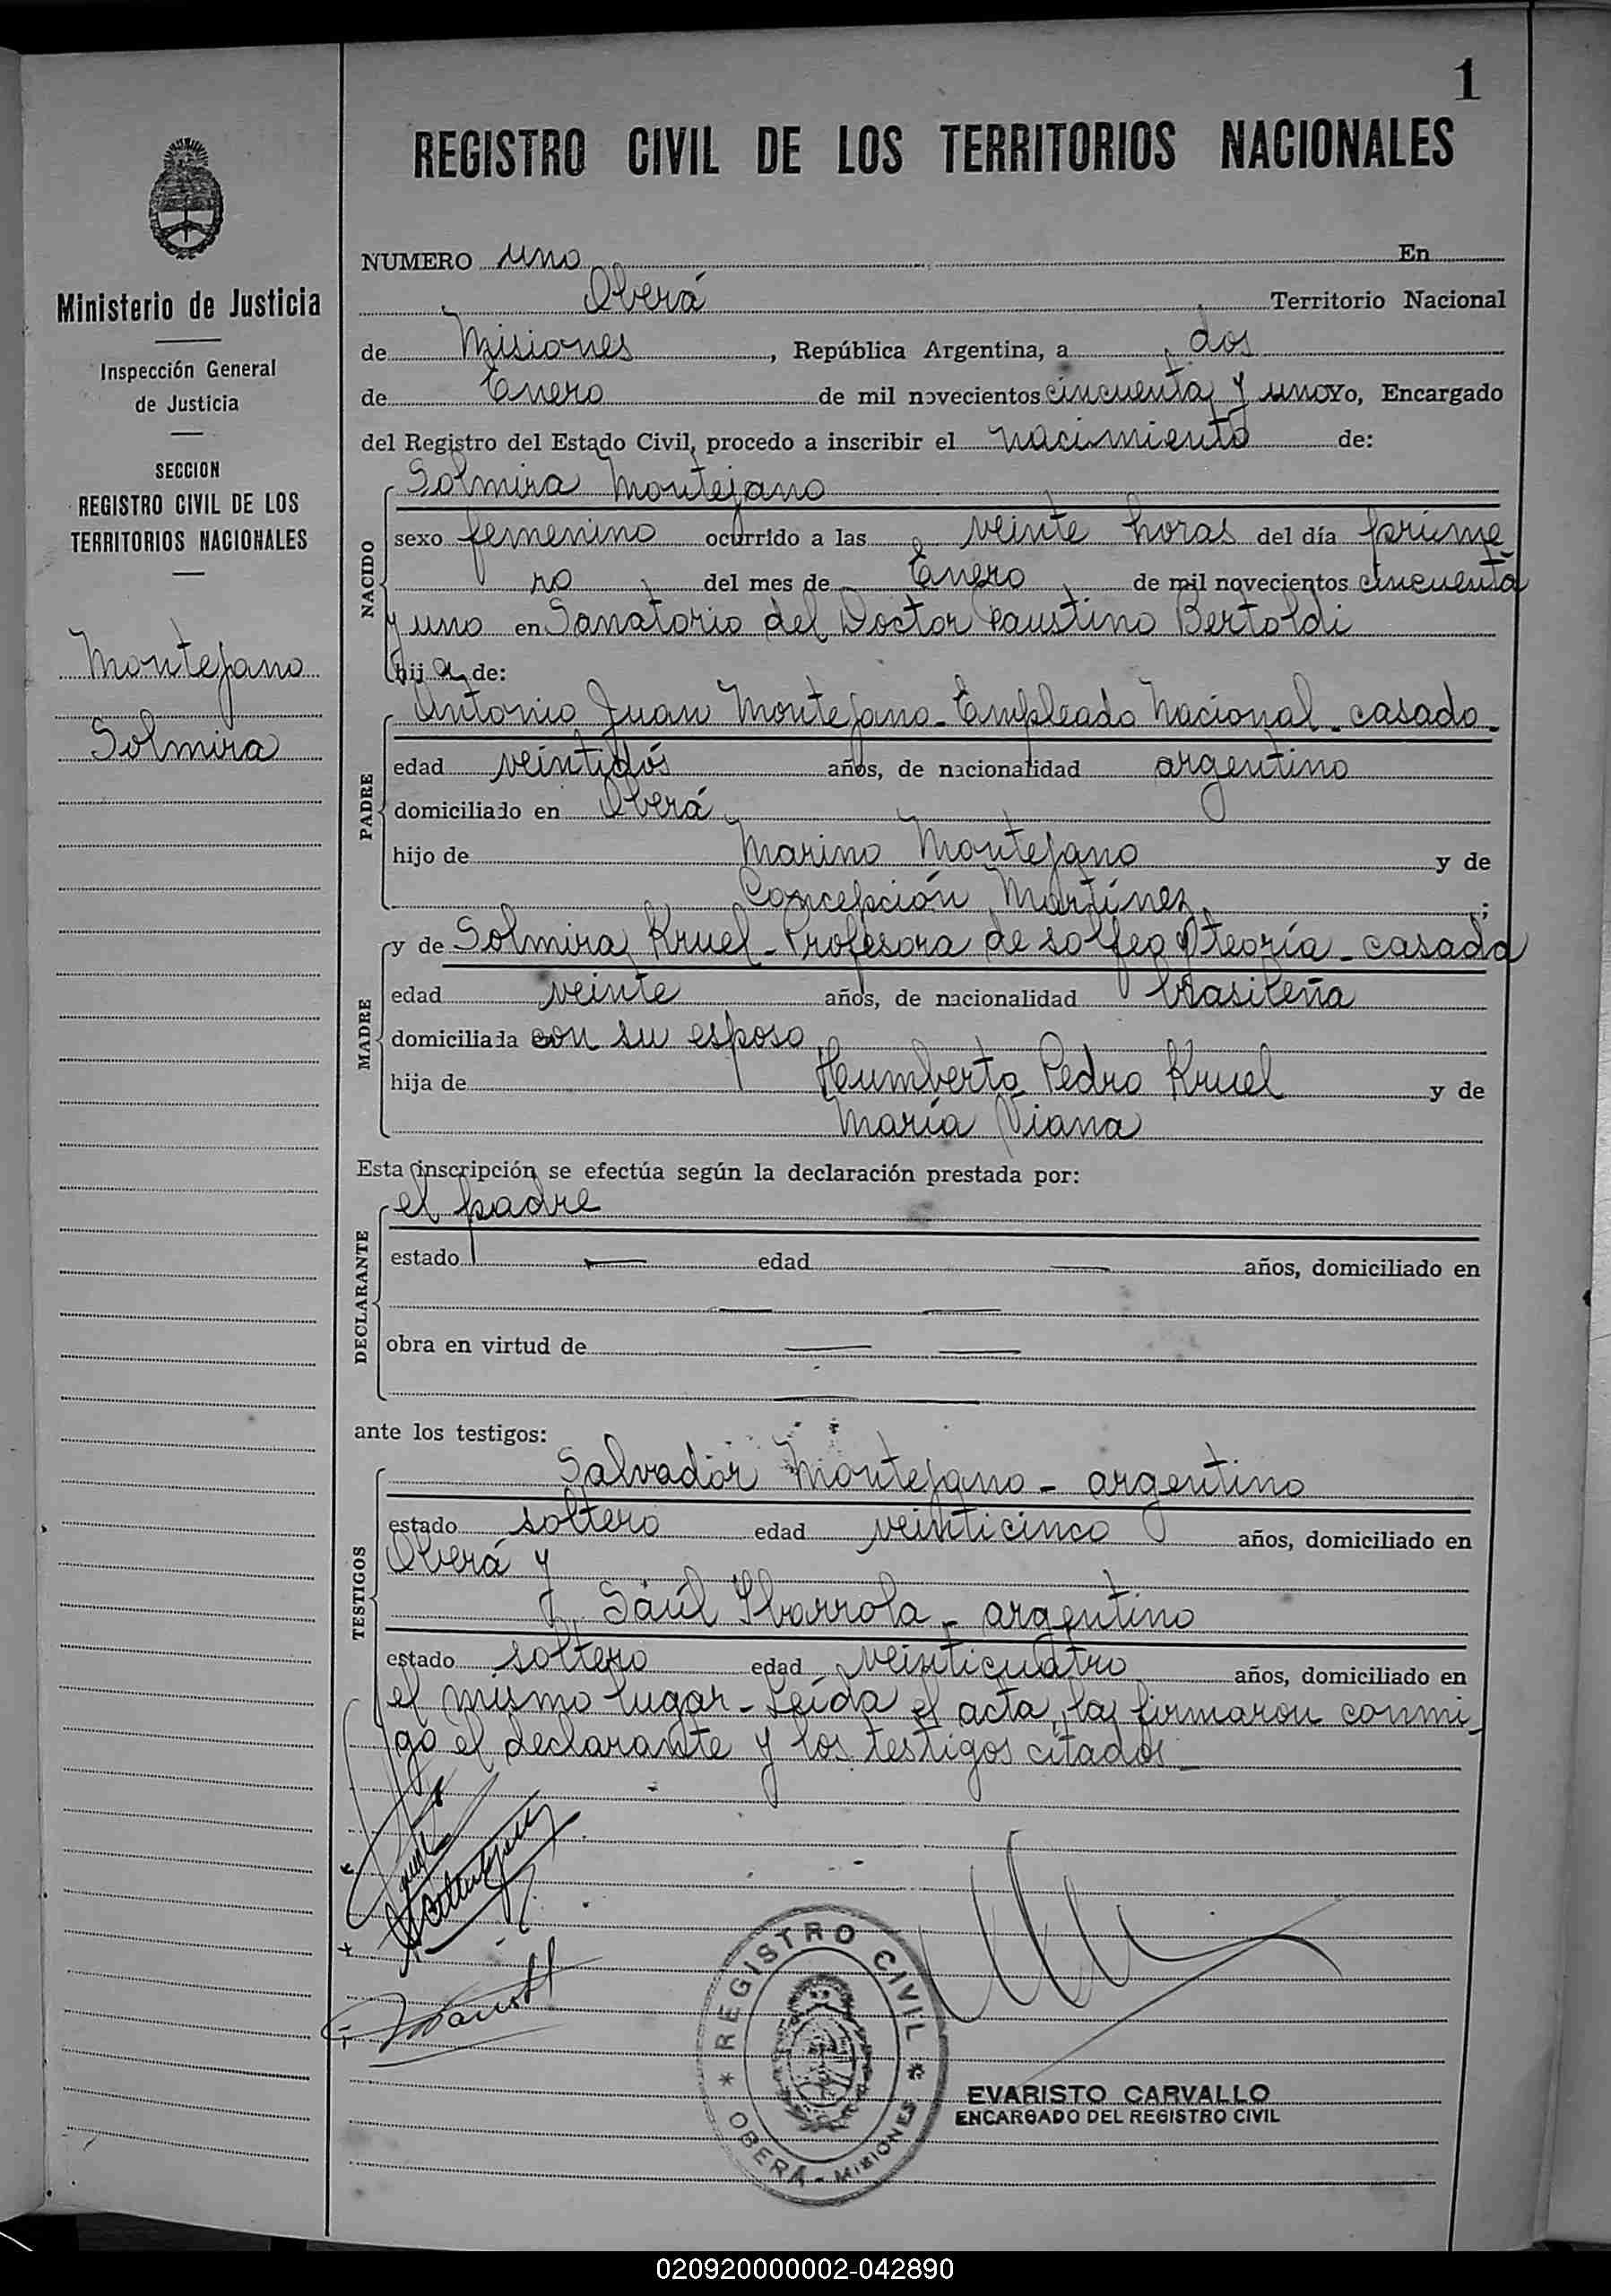 1
REGISTRO CIVIL DE LOS TERRITORIOS NACIONALES
Ministerio de Justicia
Inspección General
de Justicia
SECCION
REGISTRO CIVIL DE LOS
TERRITORIOS NACIONALES
Montejano
Solmira
NUMERO uno En
Oberá Territorio Nacional
de Misiones, República Argentina, a dos
de Enero de mil novecientos cincuenta y uno Yo, Encargado
del Registro del Estado Civil, procedo a inscribir el nacimiento de:
NACIDO
Solmira Montejano
sexo femenino ocurrido a las veinte horas del día prime
ro del mes de Enero de mil novecientos cincuenta
y uno en Sanatorio del Doctor Faustino Bertoldi
hija de:
PADRE
Antonio Juan Montejano - Empleado Nacional - casado -
edad veintidós años, de nacionalidad argentino
domiciliado en Oberá
hijo de Marino Montejano y de
Concepción Martínez ;
MADRE
y de Solmira Kruel - Profesora de solfeo y teoría - casada
edad veinte años, de nacionalidad brasileña
domiciliada con su esposo
hija de Humberto Pedro Kruel y de
María Viana
Esta inscripción se efectúa según la declaración prestada por:
DECLARANTE
el padre
estado — edad — años, domiciliado en
— —
obra en virtud de — —
—
ante los testigos:
TESTIGOS
Salvador Montejano - argentino
estado soltero edad veinticinco años, domiciliado en
Oberá y
Saúl Ibarrola - argentino
estado soltero edad veinticuatro años, domiciliado en
el mismo lugar - Leída el acta, la firmaron conmi-
go el declarante y los testigos citados -
REGISTRO CIVIL
* OBERÁ - MISIONES *
EVARISTO CARVALLO
ENCARGADO DEL REGISTRO CIVIL
020920000002-042890